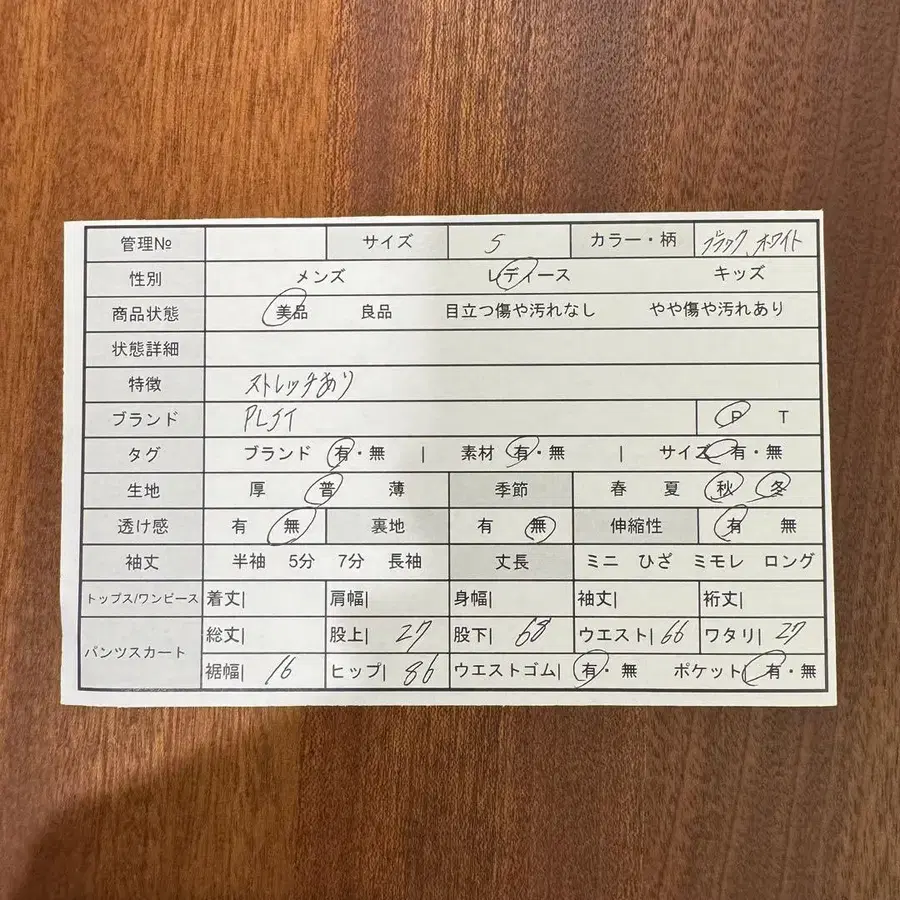 管理№ サイズ S カラー・柄 ブラック、ホワイト
性別 メンズ レディース キッズ
商品状態 美品 良品 目立つ傷や汚れなし やや傷や汚れあり
状態詳細
特徴 ストレッチあり
ブランド PLST P T
タグ ブランド 有・無 | 素材 有・無 | サイズ 有・無
生地 厚 普 薄 季節 春 夏 秋 冬
透け感 有 無 裏地 有 無 伸縮性 有 無
袖丈 半袖 5分 7分 長袖 丈長 ミニ ひざ ミモレ ロング
トップス/ワンピース 着丈| 肩幅| 身幅| 袖丈| 裄丈|
パンツスカート 総丈| 股上| 27 股下| 68 ウエスト| 66 ワタリ| 27
裾幅| 16 ヒップ| 86 ウエストゴム| 有・無 ポケット| 有・無